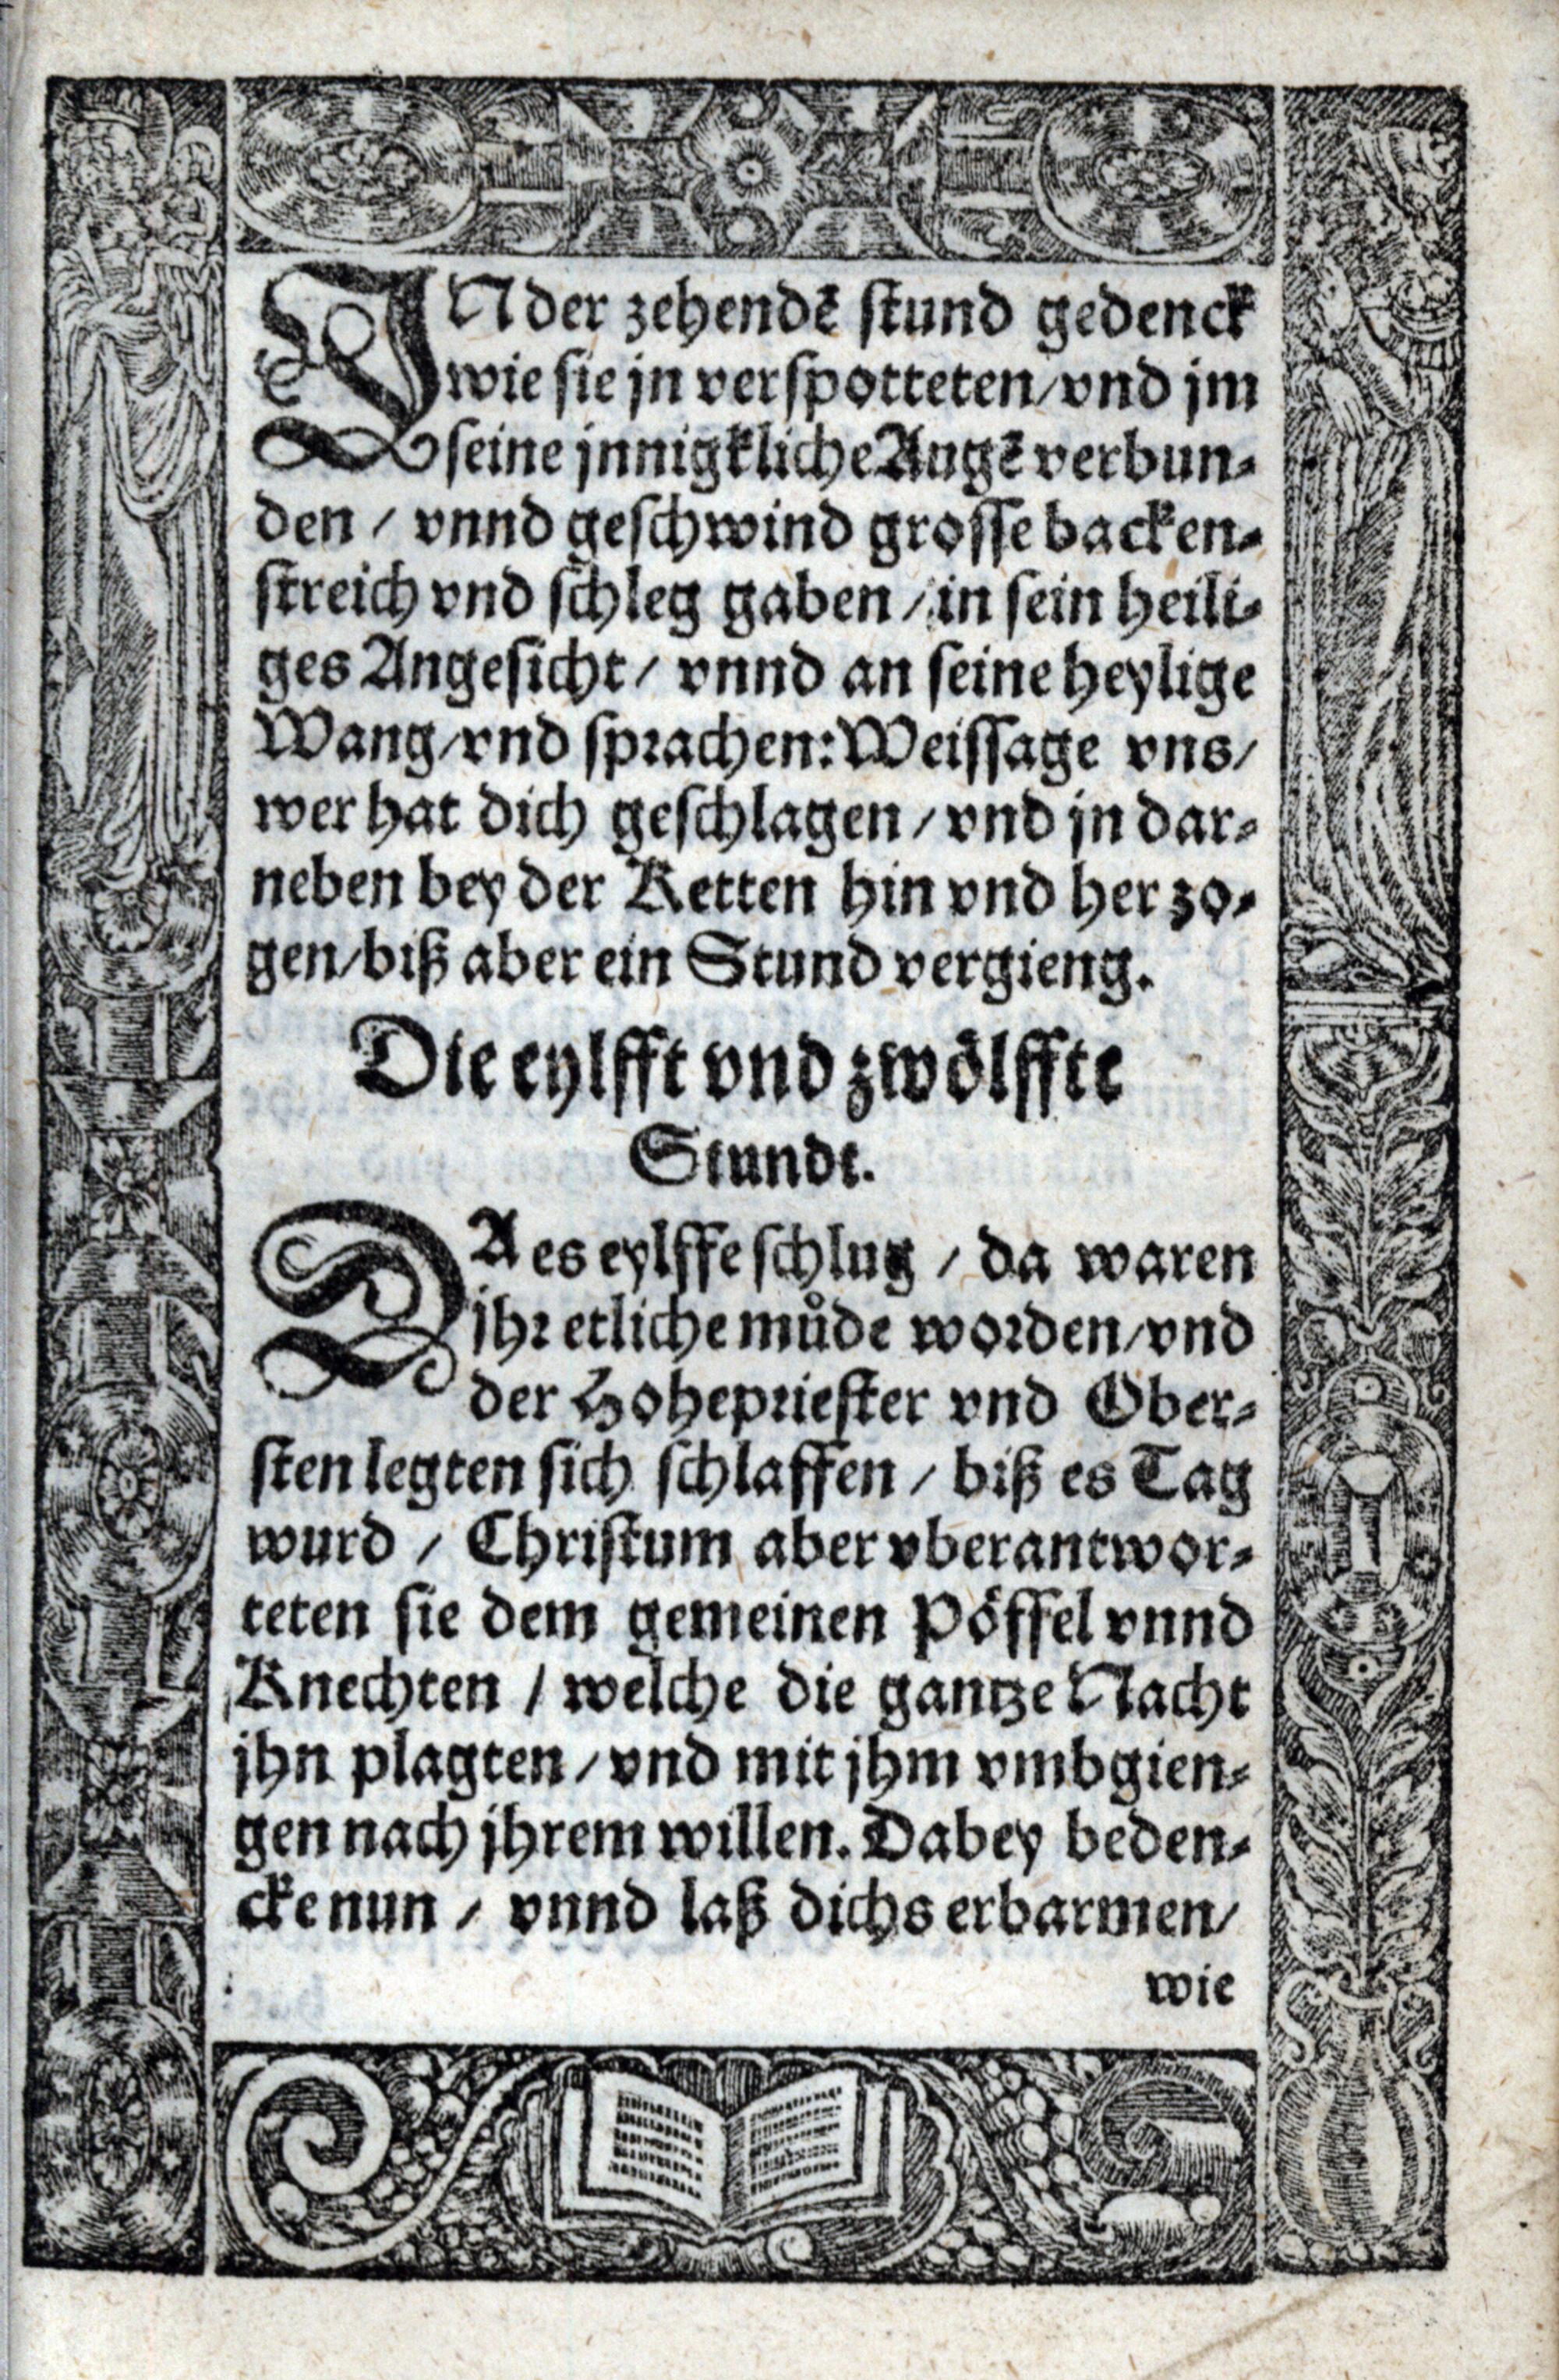 IN der zehendẽ stund gedenck
wie sie jn verspotteten/vnd jm
seine jnnigkliche Augẽ verbun-
den / vnnd geschwind grosse backen-
streich vnd schleg gaben / in sein heili-
ges Angesicht/ vnnd an seine heylige
Wang/vnd sprachen: Weissage vns/
wer hat dich geschlagen / vnd jn dar-
neben bey der Ketten hin vnd her zo-
gen/biß aber ein Stund vergieng.
Die eylfft vnd zwoͤlffte
Stundt.
DA es eylffe schlug / da waren
jhr etliche muͤde worden/vnd
der Hohepriester vnd Ober-
sten legten sich schlaffen / biß es Tag
wurd / Christum aber vberantwor-
teten sie dem gemeinen Poͤffel vnnd
Knechten / welche die gantze Nacht
jhn plagten / vnd mit jhm vmbgien-
gen nach jhrem willen. Dabey beden-
cke nun / vnnd laß dichs erbarmen/
wie